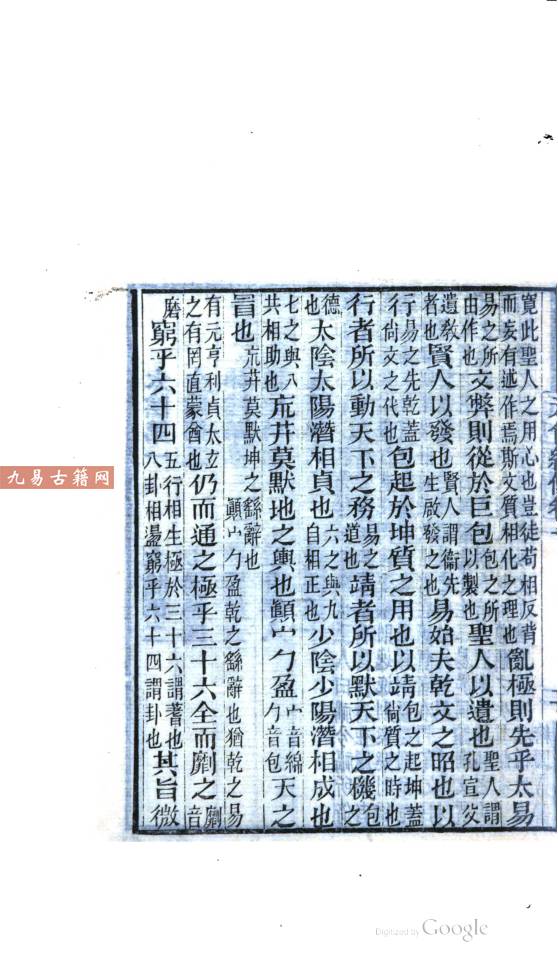 寬此聖人之用心也豈徒苟相反背而妄有述作焉斯文質相化之理也亂極則先乎太易
易之所由作也文弊則從於巨包包之所以製也聖人以遺也聖人謂孔宣父
遺敎者也賢人以發也賢人謂衛先生啟發之也易始夫乾文之昭也以
行易之先乾蓋尙文之代也包起於坤質之用也以靖包之起坤蓋尙質之時也
行者所以動天下之務易之道也靖者所以默天下之機包之
德也太陰太陽潛相貞也六之與九自相正也少陰少陽潛相成也
七之與八共相助也巟茻莫默地之輿也顚宀勹盈宀音綿勹音包天之
冒也巟茻莫默坤之繇辭也顚宀勹盈乾之繇辭也猶乾之易
有元亨利貞太玄之有罔直蒙酋也仍而通之極乎三十六全而劘之劘音
磨窮乎六十四五行相生極於三十六謂蓍也八卦相盪窮乎六十四謂卦也其旨微
九易古籍网
Digitized by Google